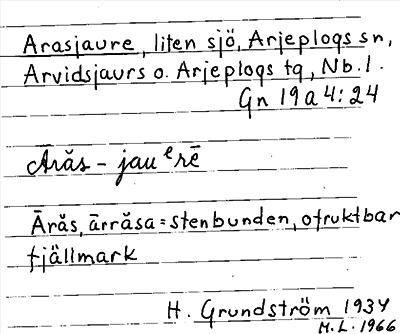 Arasjaure, liten sjö, Arjeplogs sn,
Arvidsjaurs o. Arjeplogs tg, Nb. l.
Gn 19a 4:24
Ārăs - jauᵉrē
Ārăs, ārrăsa = stenbunden, ofruktbar
fjällmark
H. Grundström 1934
M.L. 1966